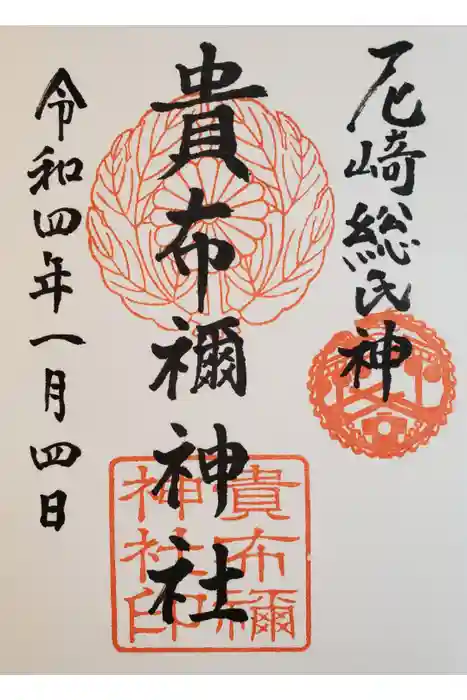 尼崎総氏神
貴布禰神社
令和四年一月四日
貴布禰
神社印